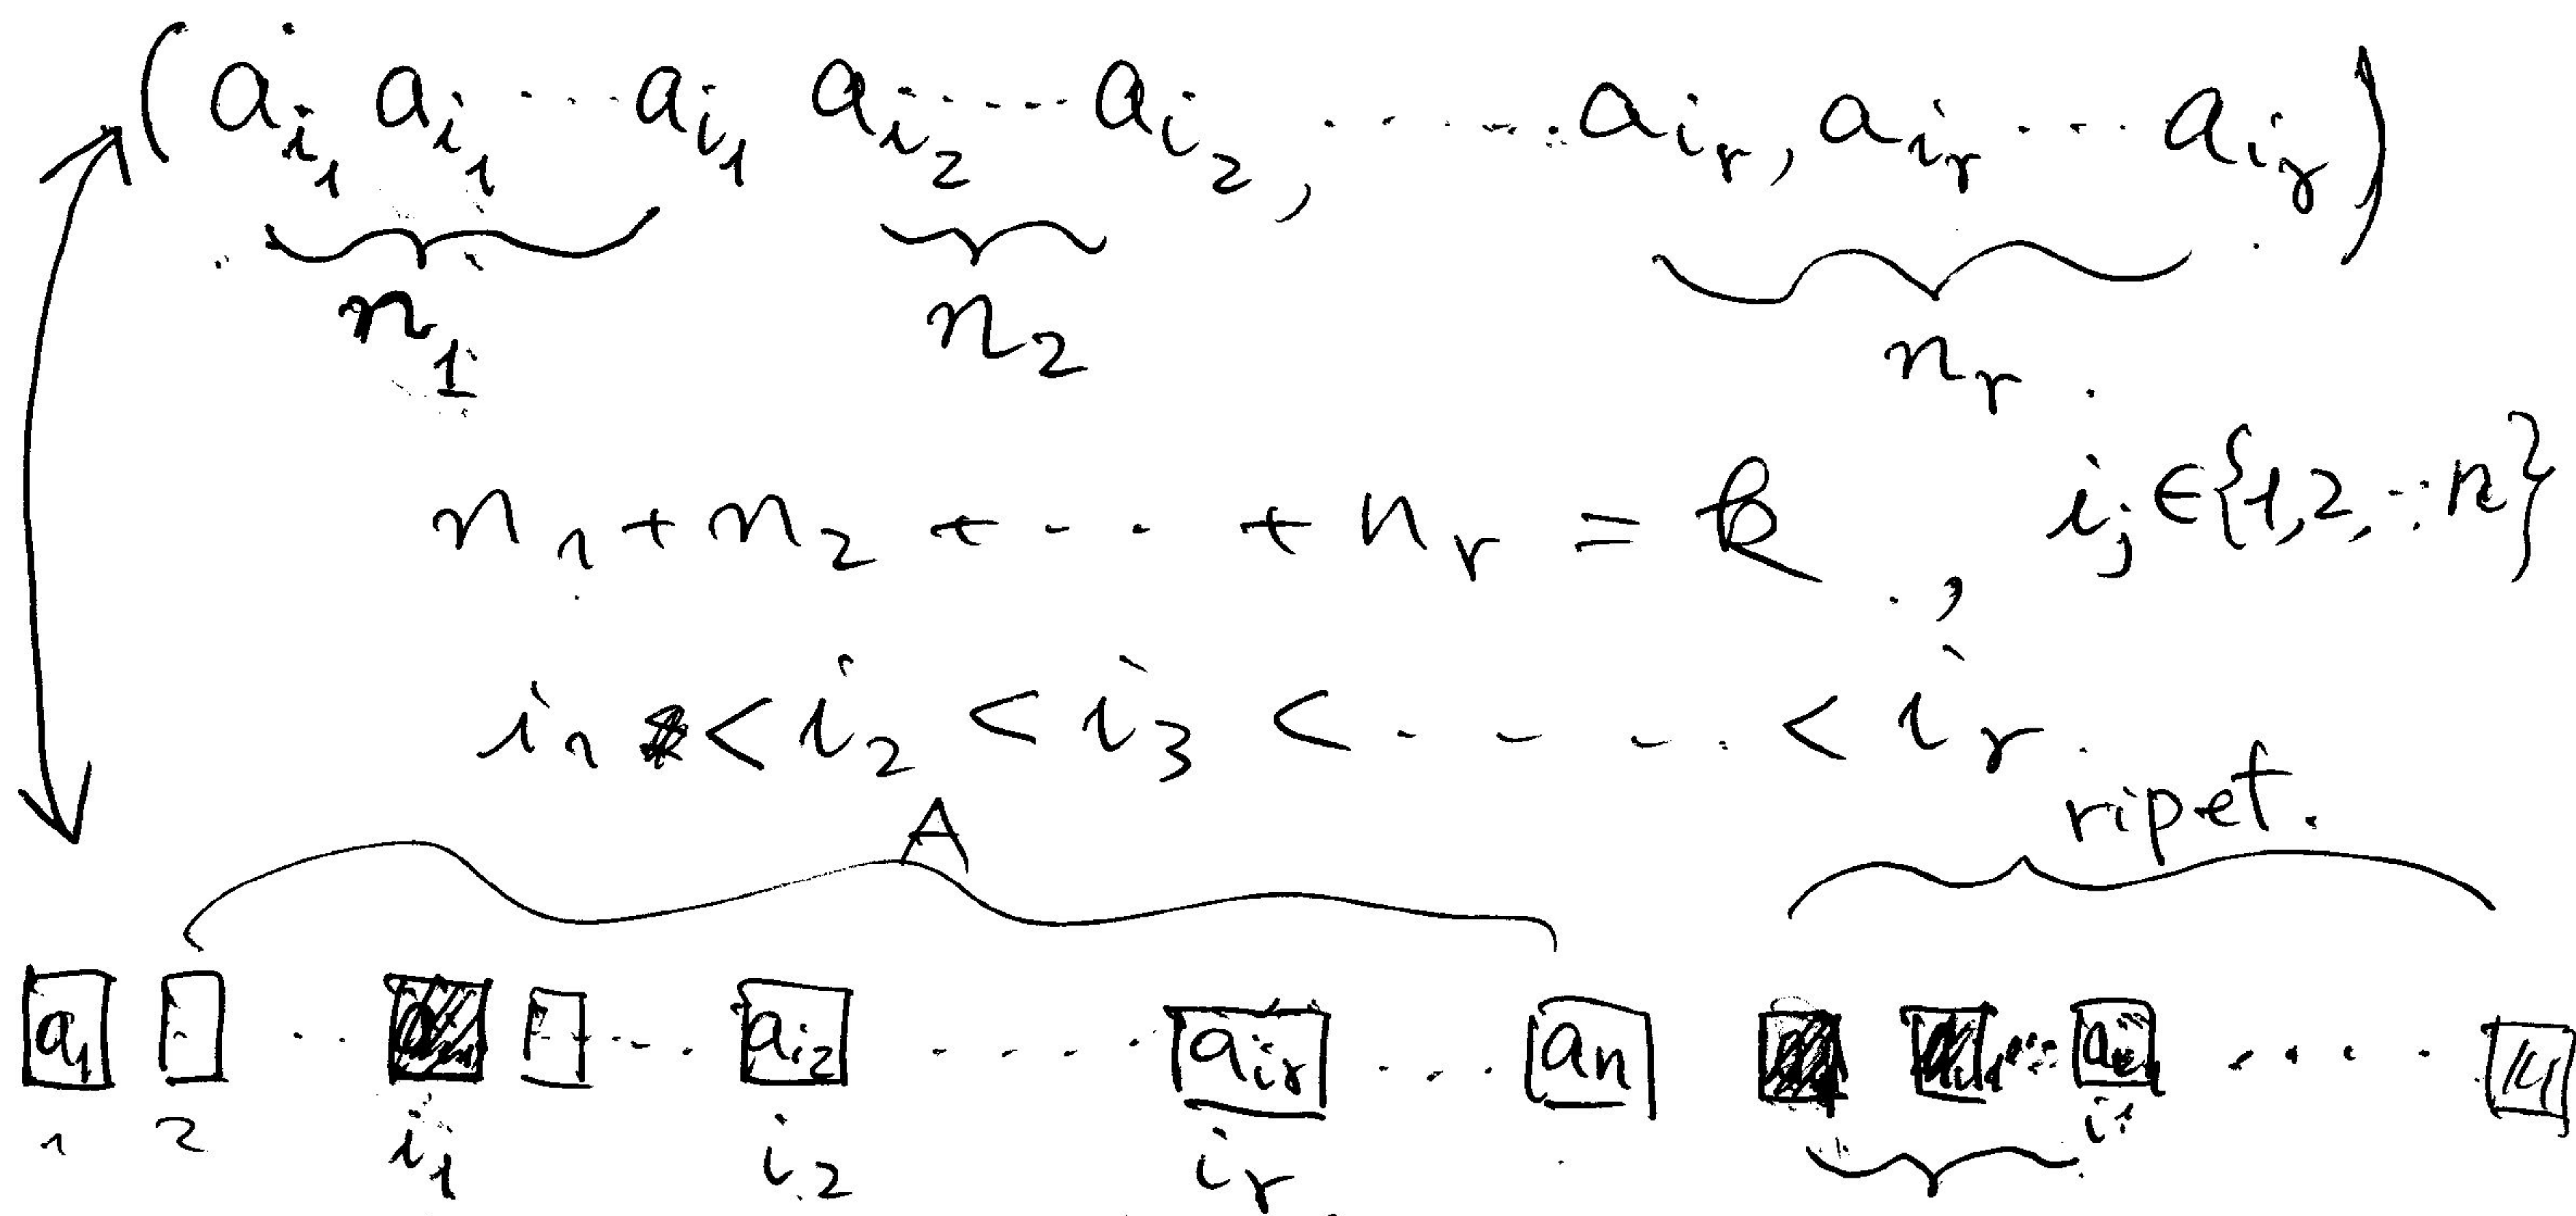 ( a_{i_1} a_{i_1} ... a_{i_1} a_{i_2} ..... a_{i_2}, ........ a_{i_r}, a_{i_r} ... a_{i_r} )
n_1 n_2 n_r
n_1 + n_2 + ... + n_r = k , i_j ∈ {1,2,..n}
i_1 < i_2 < i_3 < ..... < i_r
A ripet.
a_1 ... ... a_{i_2} ..... a_{i_r} .... a_n ....
1 2 i_1 i_2 i_r i_1